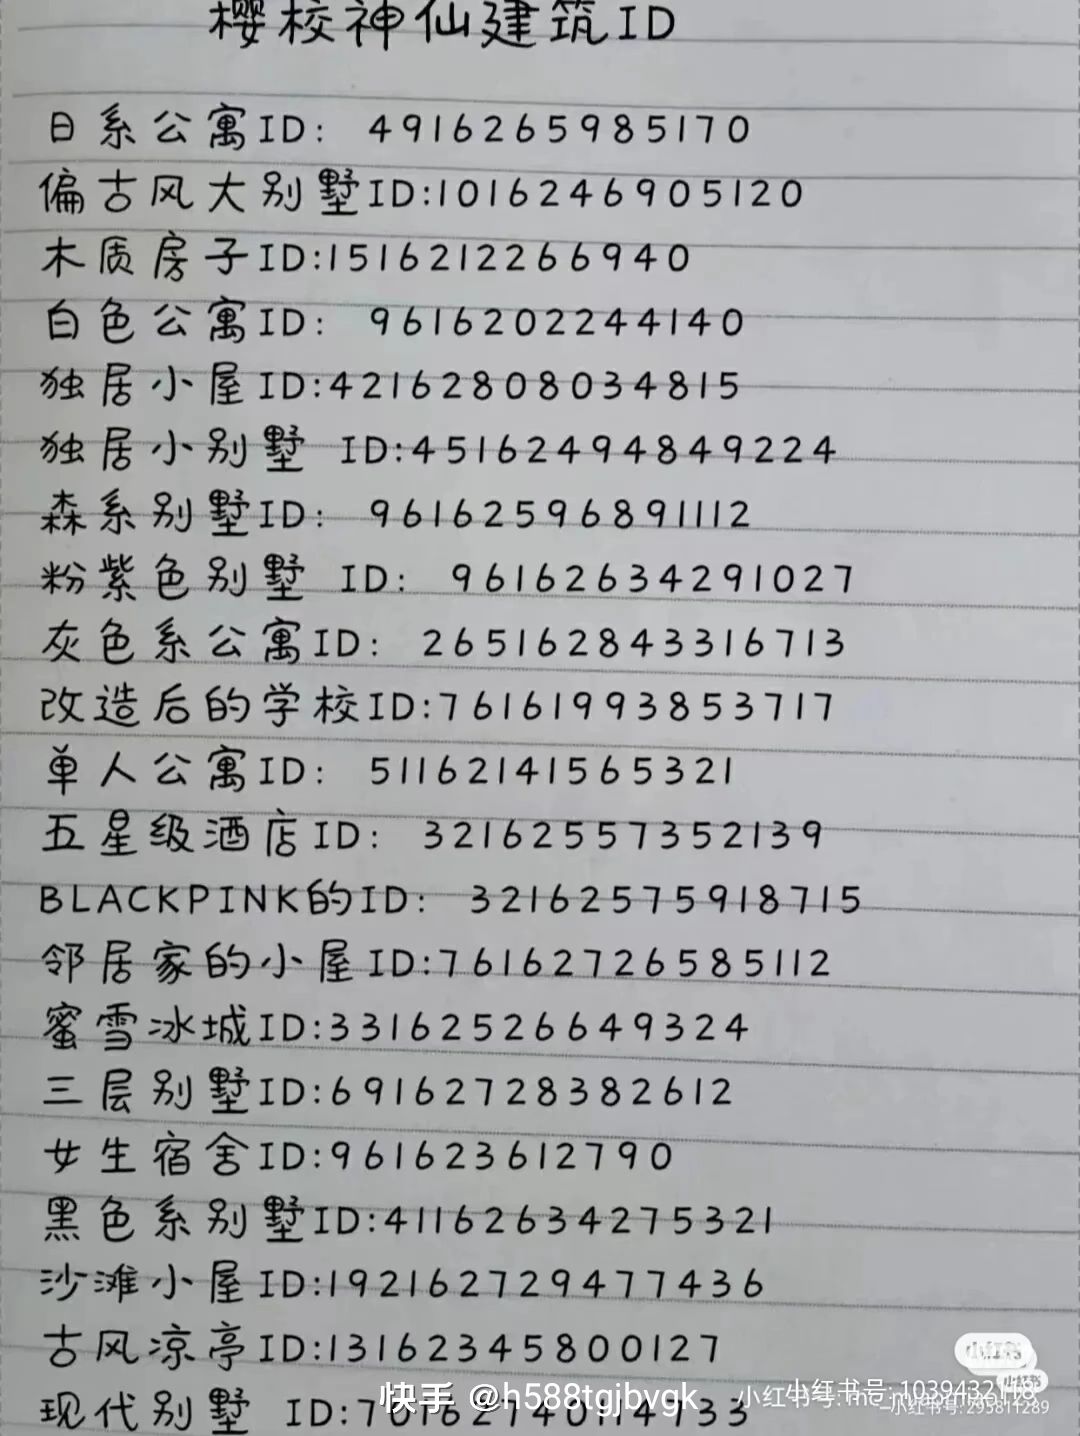 樱校神仙建筑ID
日系公寓ID: 4916265985170
偏古风大别墅ID:1016246905120
木质房子ID:1516212266940
白色公寓ID: 9616202244140
独居小屋ID:42162808034815
独居小别墅 ID:45162494849224
森系别墅ID: 96162596891112
粉紫色别墅 ID: 96162634291027
灰色系公寓ID: 265162843316713
改造后的学校ID:76161993853717
单人公寓ID: 51162141565321
五星级酒店ID: 32162557352139
BLACKPINK的ID: 32162575918715
邻居家的小屋ID:76162726585112
蜜雪冰城ID:33162526649324
三层别墅ID:69162728382612
女生宿舍ID:961623612790
黑色系别墅ID:41162634275321
沙滩小屋ID:192162729477436
古风凉亭ID:13162345800127
现代别墅 ID:
快手 @h588tgjbvgk
小红书号: 1039432118
小红书号:295811289
小红书